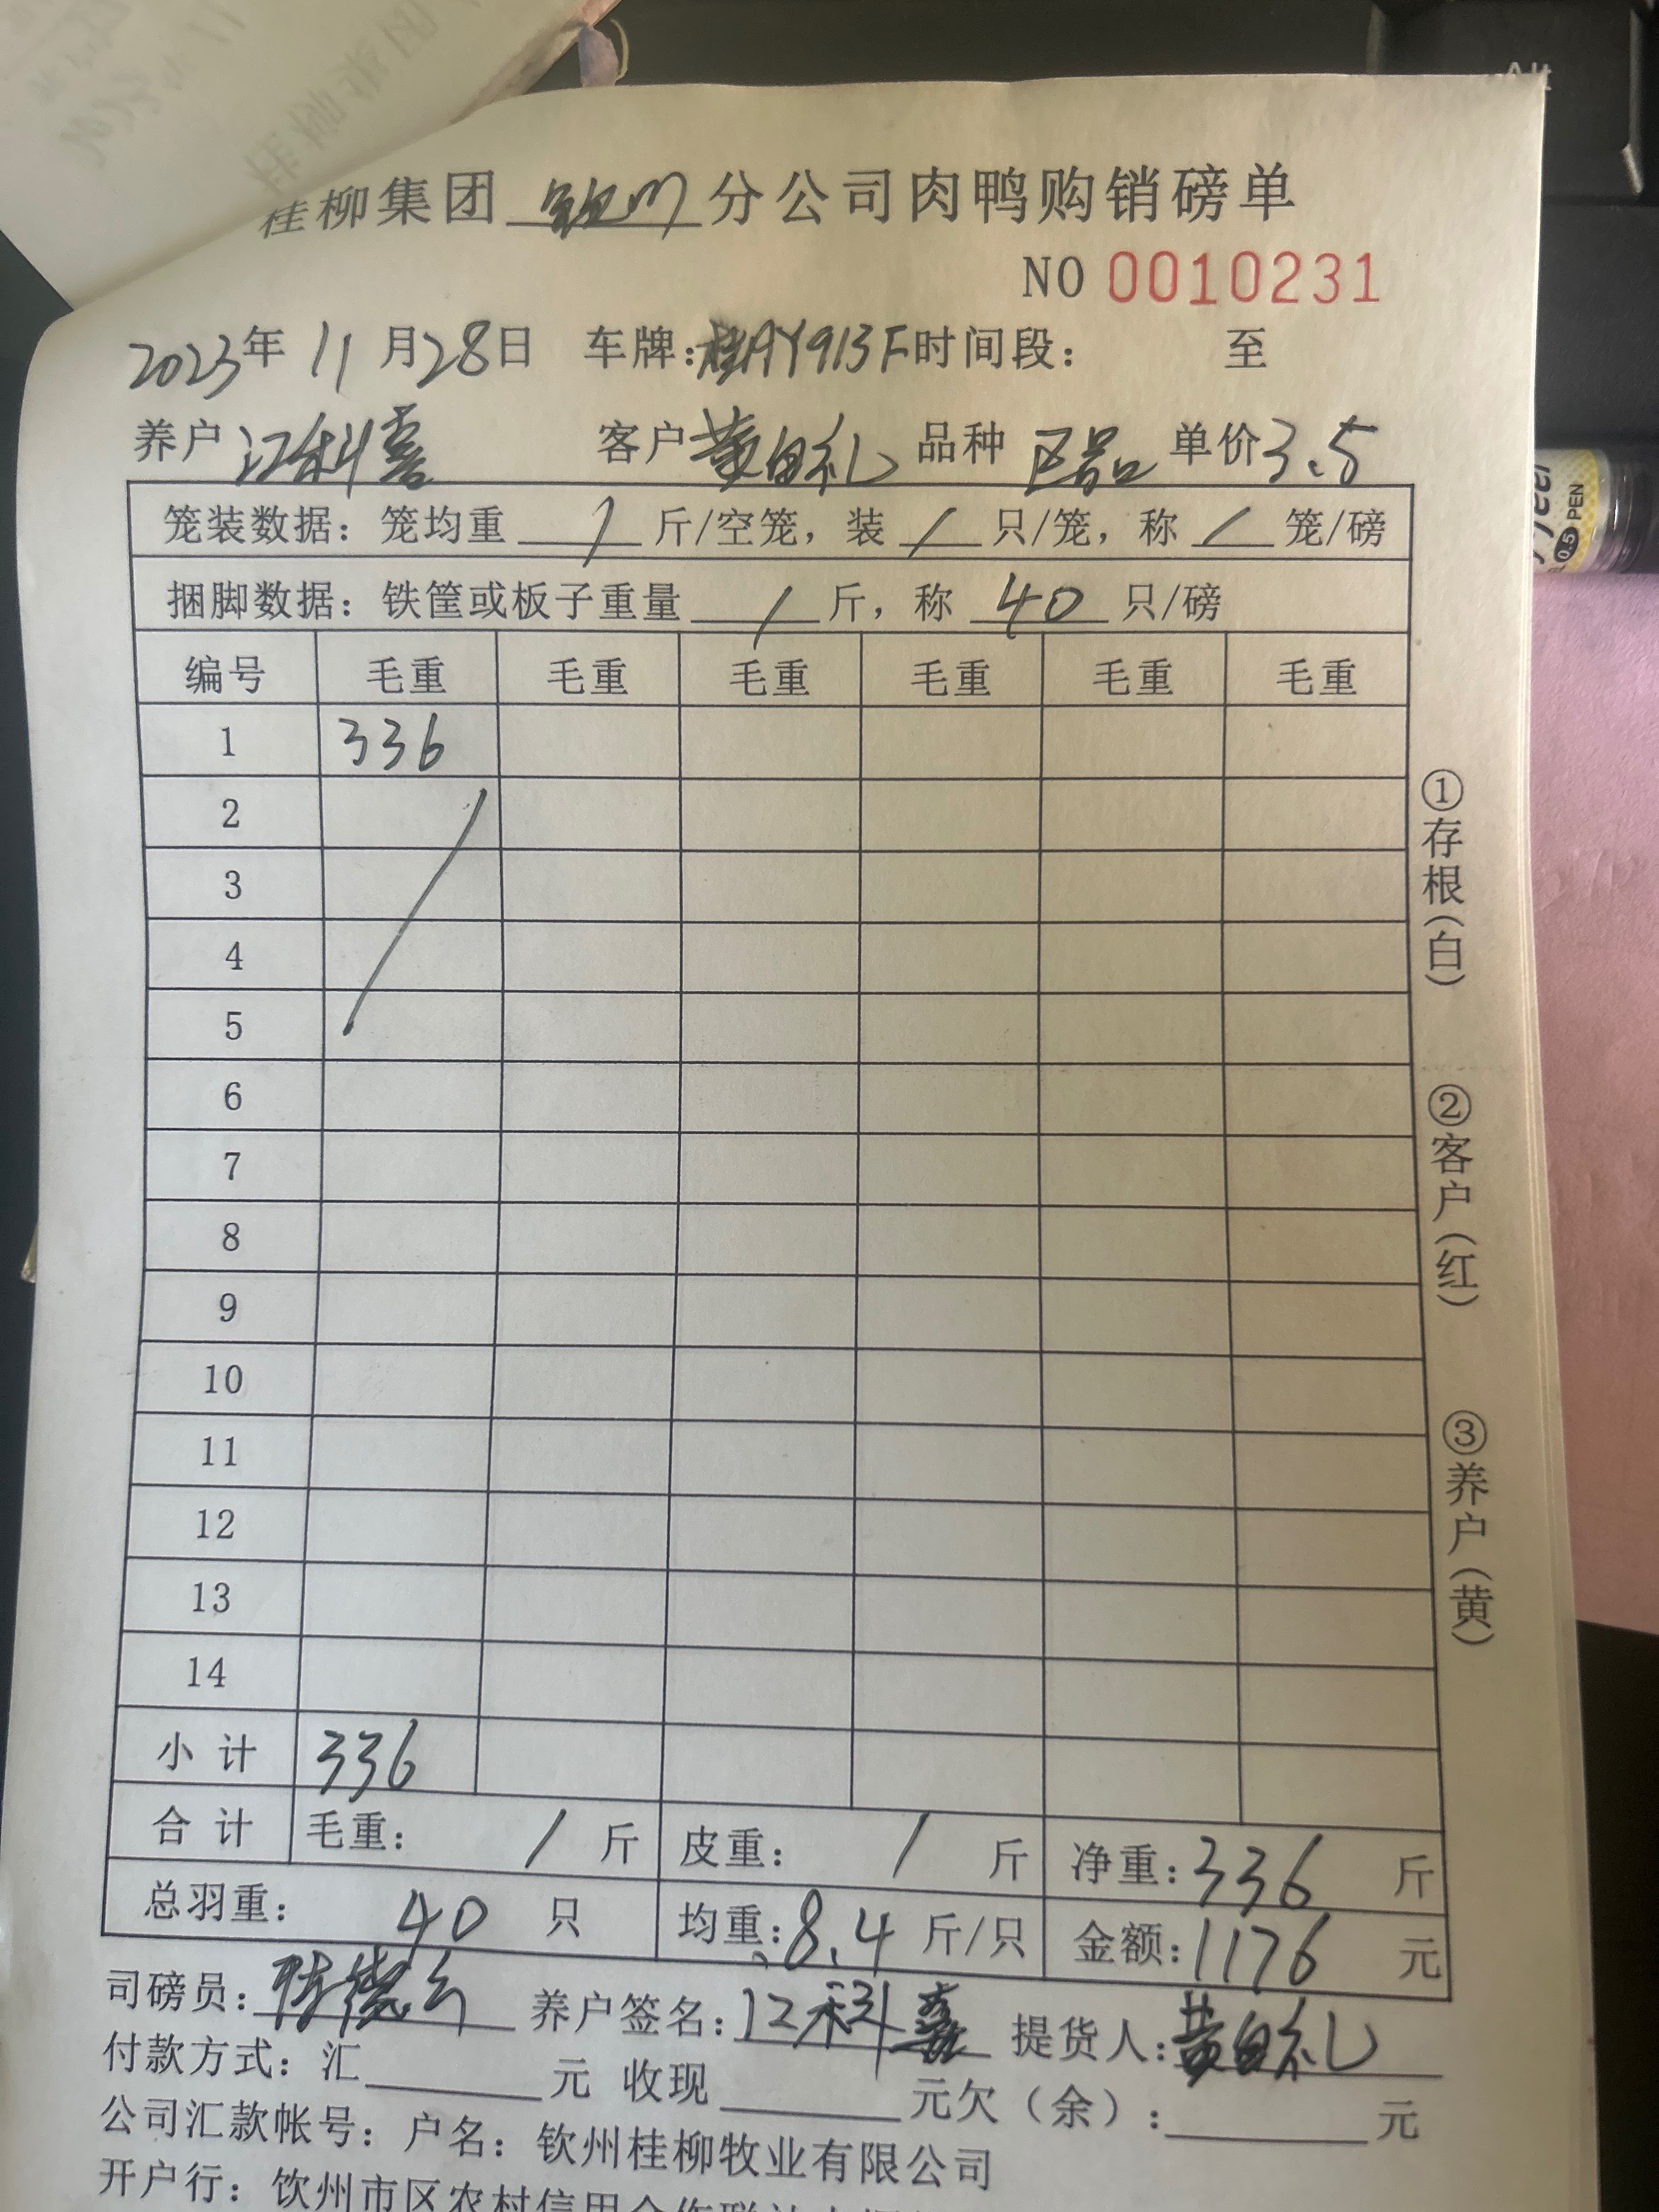 桂柳集团 钦州 分公司肉鸭购销磅单
NO 0010231
2023年 11 月28日 车牌:桂AY913F时间段: 至
养户 江科喜 客户 黄自礼 品种 区品 单价3.5
笼装数据: 笼均重 / 斤/空笼, 装 / 只/笼, 称 / 笼/磅
捆脚数据: 铁筐或板子重量 / 斤, 称 40 只/磅
编号 毛重 毛重 毛重 毛重 毛重 毛重
1 336
2
3
4
5
6
7
8
9
10
11
12
13
14
小计 336
合计 毛重: / 斤 皮重: / 斤 净重:336 斤
总羽重: 40 只 均重:8.4 斤/只 金额:1176 元
司磅员: 养户签名:江科喜 提货人:黄自礼
付款方式: 汇 元 收现 元欠(余): 元
公司汇款帐号: 户名: 钦州桂柳牧业有限公司
开户行: 钦州市区农村信用合作联社
①存根(白)
②客户(红)
③养户(黄)
Alt
0.5 PEN